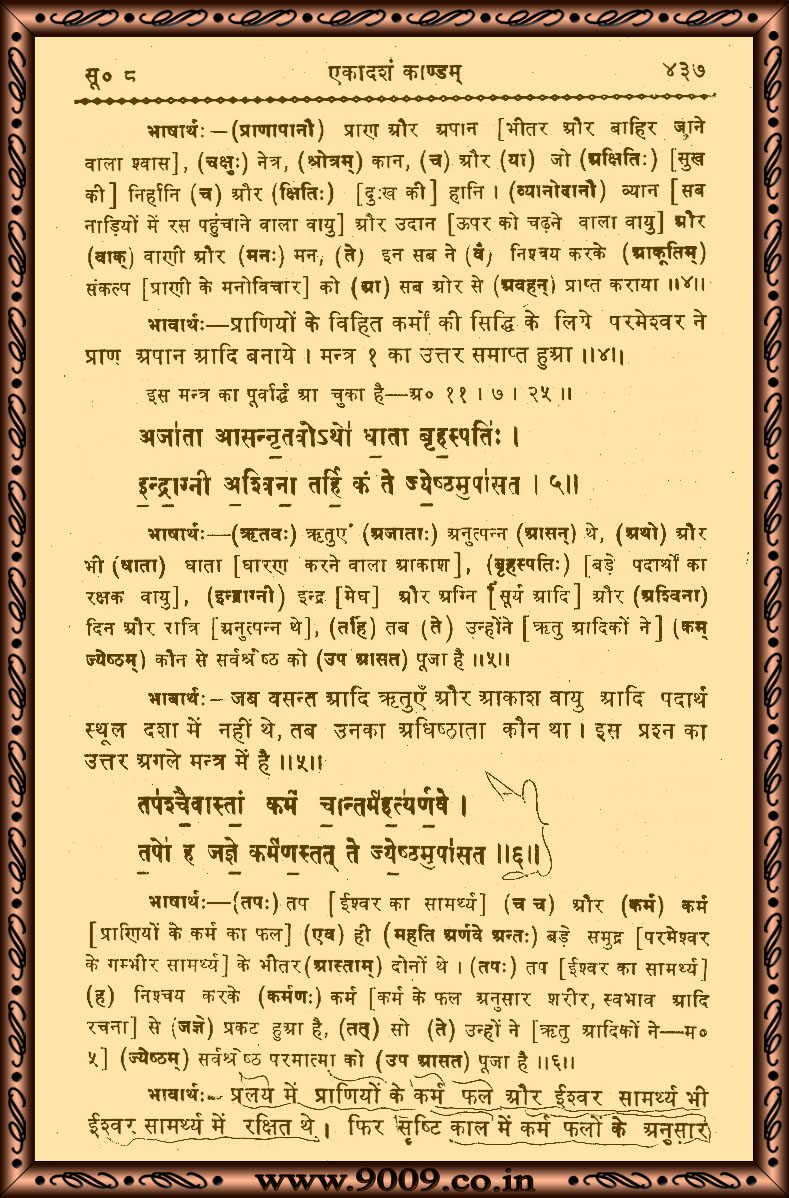 सू० ८ एकादशं काण्डम् ४३७
भाषार्थः—(प्राणापानौ) प्राण और अपान [भीतर और बाहिर जाने
वाला श्वास], (चक्षुः) नेत्र, (श्रोत्रम्) कान, (च) और (या) जो (अक्षितिः) [सुख
की] निर्हानि (च) और (क्षितिः) [दुःख की] हानि । (व्यानोदानौ) व्यान [सब
नाड़ियों में रस पहुंचाने वाला वायु] और उदान [ऊपर को चढ़ने वाला वायु] और
(वाक्) वाणी और (मनः) मन, (ते) इन सब ने (वै) निश्चय करके (आकूतिम्)
संकल्प [प्राणी के मनोविचार] को (आ) सब ओर से (अवहन्) प्राप्त कराया ॥४॥
भावार्थः—प्राणियों के विहित कर्मों की सिद्धि के लिये परमेश्वर ने
प्राण अपान आदि बनाये । मन्त्र १ का उत्तर समाप्त हुआ ॥४॥
इस मन्त्र का पूर्वार्द्ध आ चुका है—अ० ११ । ७ । २५ ॥
अजा॑ता आसन्नृ॒तवोऽथो॑ धा॒ता बृह॒स्पतिः॑ ।
इ॒न्द्रा॒ग्नी अ॒श्विना॒ तर्हि॒ कं ते ज्ये॒ष्ठमु॒पा॑सत । ५॥
भाषार्थः—(ऋतवः) ऋतुएं (अजाताः) अनुत्पन्न (आसन्) थे, (अथो) और
भी (धाता) धाता [धारण करने वाला आकाश], (बृहस्पतिः) [बड़े पदार्थों का
रक्षक वायु], (इन्द्राग्नी) इन्द्र [मेघ] और अग्नि [सूर्य आदि] और (अश्विना)
दिन और रात्रि [अनुत्पन्न थे], (तर्हि) तब (ते) उन्होंने [ऋतु आदिकों ने] (कम्
ज्येष्ठम्) कौन से सर्वश्रेष्ठ को (उप आसत) पूजा है ॥५॥
भावार्थः– जब वसन्त आदि ऋतुएँ और आकाश वायु आदि पदार्थ
स्थूल दशा में नहीं थे, तब उनका अधिष्ठाता कौन था । इस प्रश्न का
उत्तर अगले मन्त्र में है ॥५॥
तप॑श्चै॒वास्तां॒ कर्म॑ चा॒न्तर्म॑ह॒त्य॑र्ण॒वे ।
तपो॑ ह जज्ञे॒ कर्म॑ण॒स्तत् ते ज्ये॒ष्ठमु॒पा॑सत ॥६॥
भाषार्थः—(तपः) तप [ईश्वर का सामर्थ्य] (च च) और (कर्म) कर्म
[प्राणियों के कर्म का फल] (एव) ही (महति अर्णवे अन्तः) बड़े समुद्र [परमेश्वर
के गम्भीर सामर्थ्य] के भीतर (आस्ताम्) दोनों थे । (तपः) तप [ईश्वर का सामर्थ्य]
(ह) निश्चय करके (कर्मणः) कर्म [कर्म के फल अनुसार शरीर, स्वभाव आदि
रचना] से (जज्ञे) प्रकट हुआ है, (तत्) सो (ते) उन्हों ने [ऋतु आदिकों ने—म०
५] (ज्येष्ठम्) सर्वश्रेष्ठ परमात्मा को (उप आसत) पूजा है ॥६॥
भावार्थः– प्रलय में प्राणियों के कर्म फल और ईश्वर सामर्थ्य भी
ईश्वर सामर्थ्य में रक्षित थे । फिर सृष्टि काल में कर्म फलों के अनुसार
www.9009.co.in